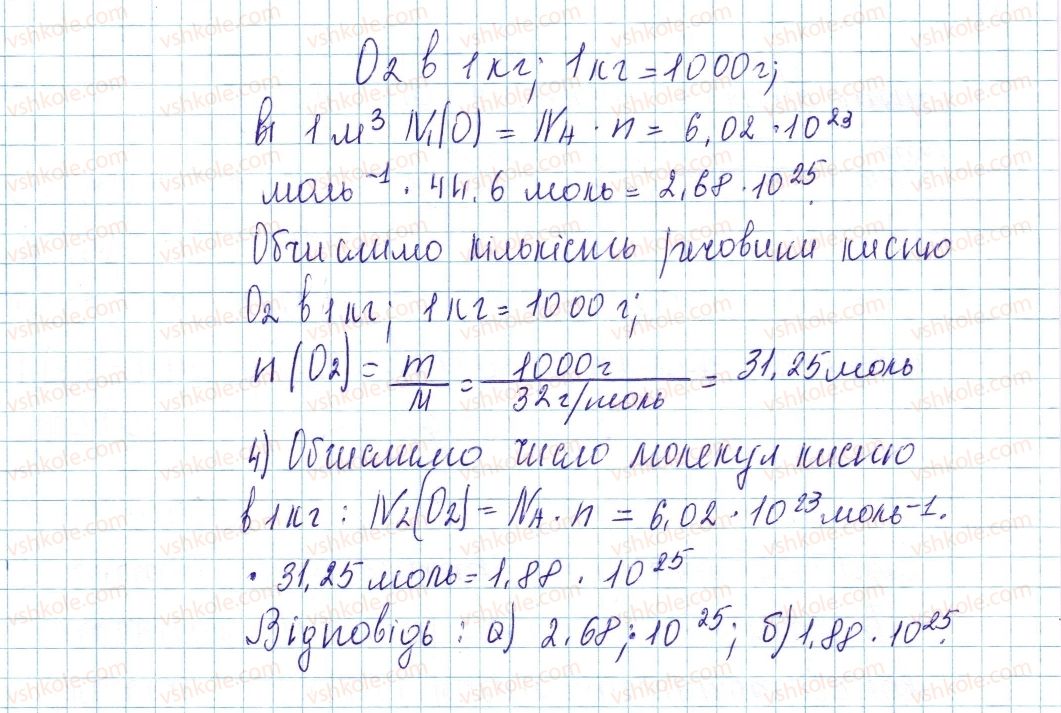 O2 в 1 кг; 1 кг = 1000 г;
в 1 м³ N1(O) = NA · n = 6,02 · 10²³
моль⁻¹ · 44,6 моль = 2,68 · 10²⁵.
Обчислимо кількість речовини кисню
O2 в 1 кг; 1 кг = 1000 г;
n(O2) = m/M = 1000 г/32 г/моль = 31,25 моль
4) Обчислимо число молекул кисню
в 1 кг : N2(O2) = NA · n = 6,02 · 10²³ моль⁻¹ ·
· 31,25 моль = 1,88 · 10²⁵
Відповідь : а) 2.68 · 10²⁵; б) 1,88 · 10²⁵.
vshkole.com